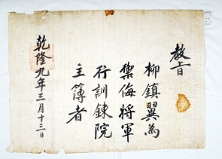 教旨
柳鎮翼爲
禦侮將軍
行訓鍊院
主簿者
乾隆九年三月十三日